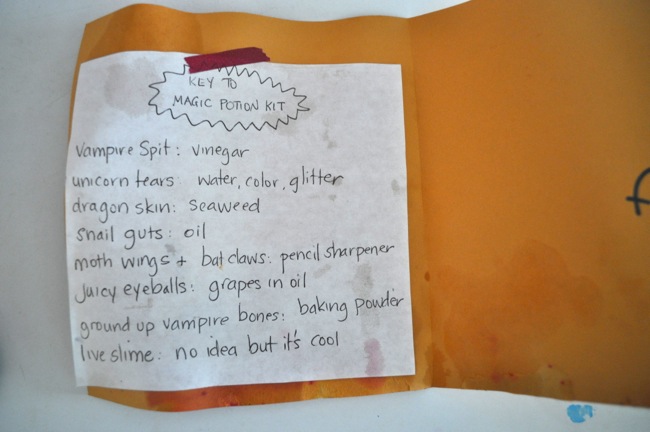 KEY TO
MAGIC POTION KIT
Vampire Spit: vinegar
unicorn tears: water, color, glitter
dragon skin: seaweed
snail guts: oil
moth wings + bat claws: pencil sharpener
juicy eyeballs: grapes in oil
ground up vampire bones: baking powder
live slime: no idea but it's cool